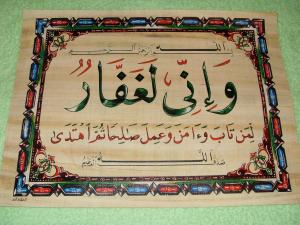 بسم الله الرحمن الرحيم
وَإِنِّي لَغَفَّارٌ
لِّمَن تَابَ وَءَامَنَ وَعَمِلَ صَالِحًا ثُمَّ اهْتَدَى
صدق الله العظيم